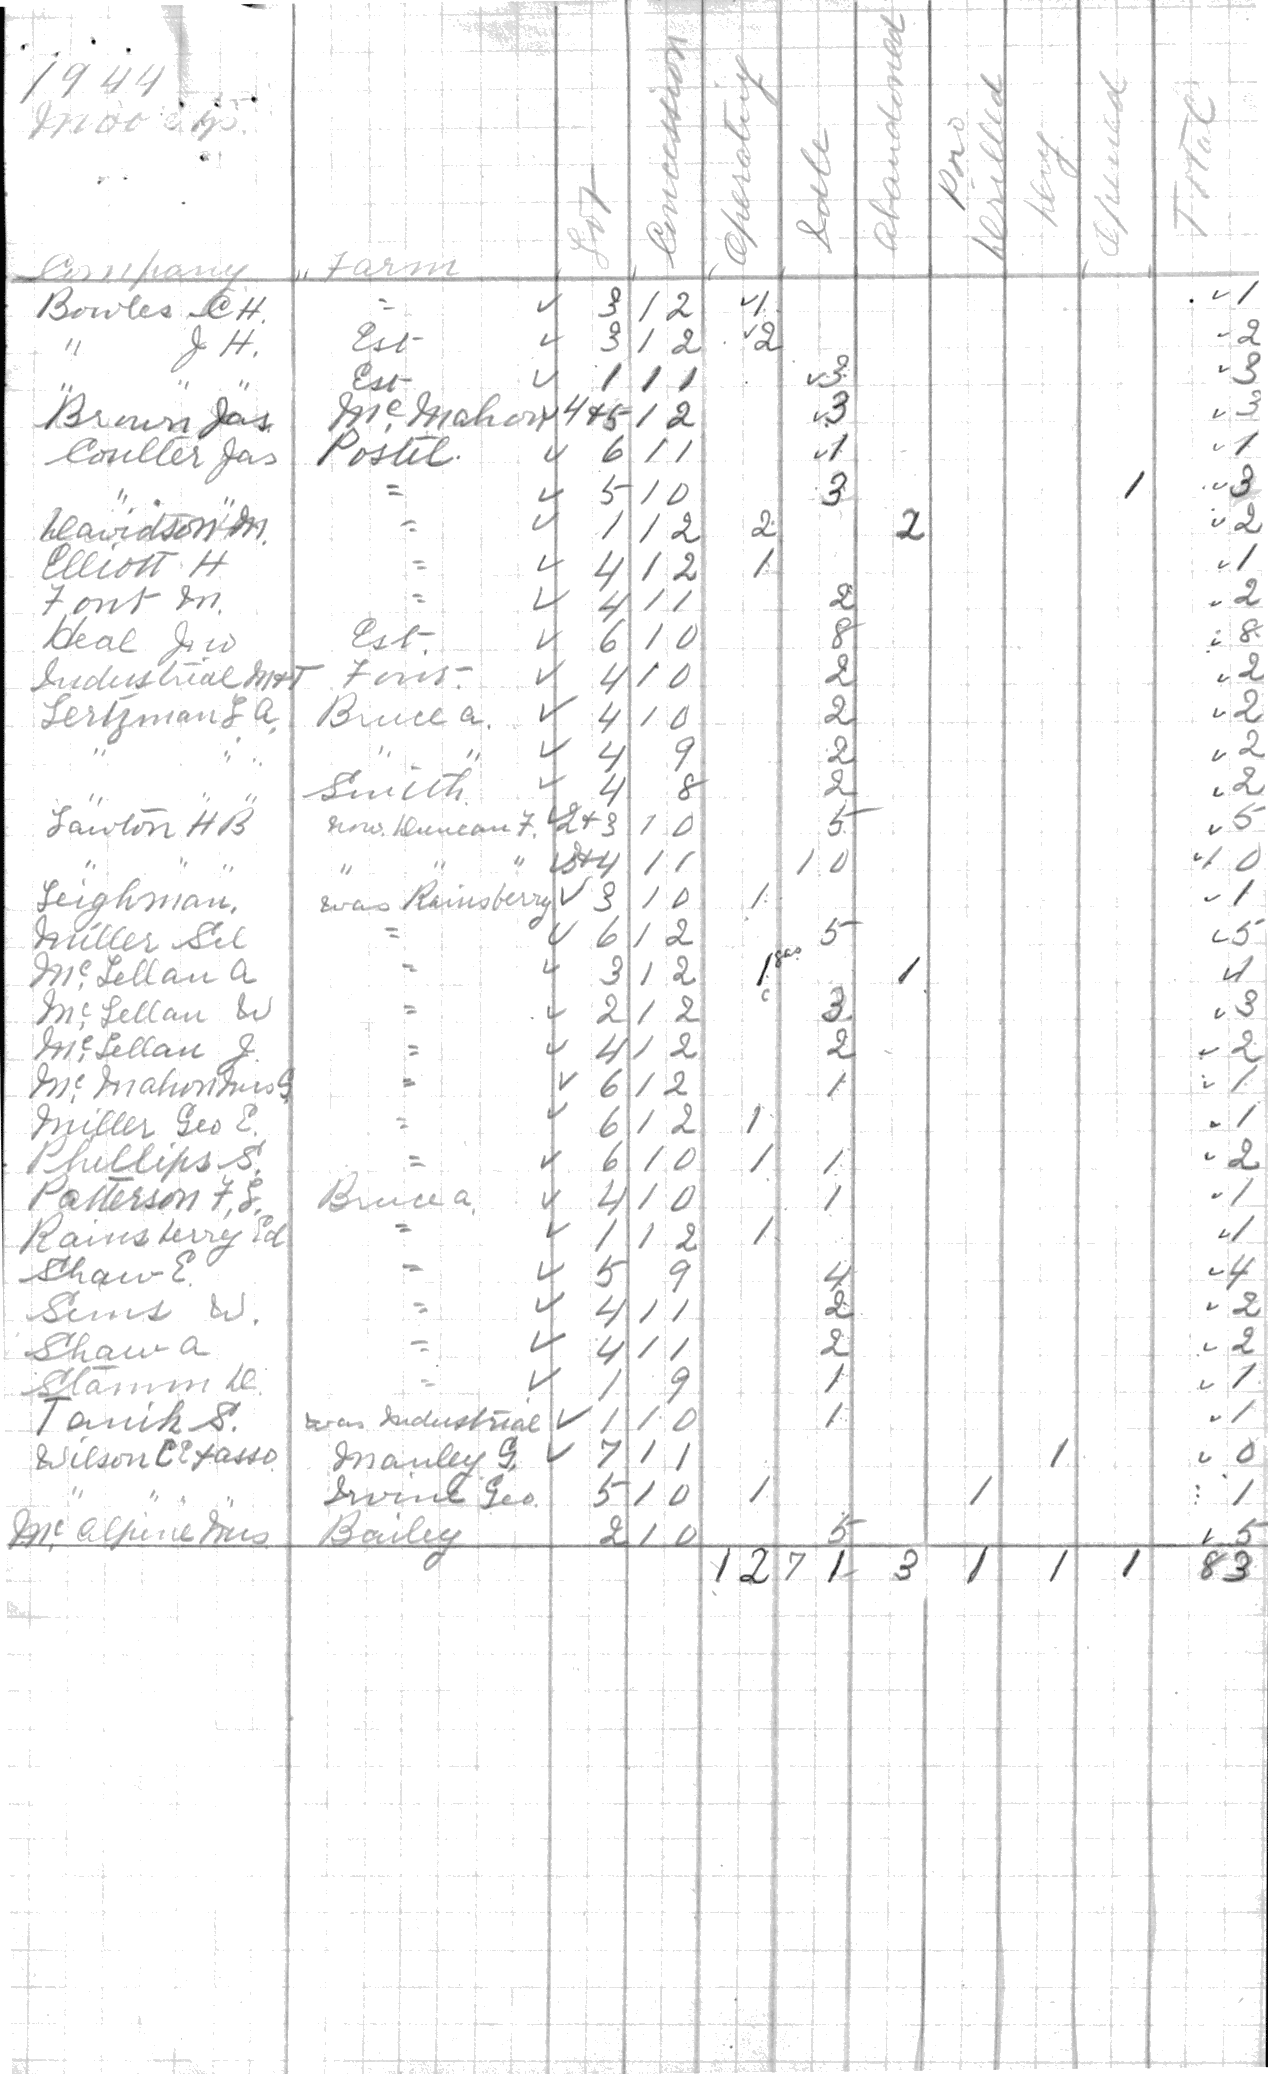 1944
Company Farm Lot Concession Operating Idle Abandoned Pro Drilled Dry Opened Total
Bowles C H. " ✓ 3 12 ✓1 ✓1
" J H. Est ✓ 3 12 ✓2 ✓2
" " " Est ✓ 1 11 ✓3 ✓3
Brown Jas. Mc. Mahon ✓ 4+5 12 ✓3 ✓3
Coulter Jas Postil. ✓ 6 11 ✓1 ✓1
" " = ✓ 5 10 3 1 ✓3
Davidson M. = ✓ 1 12 2 2 ✓2
Elliott H = ✓ 4 12 1 ✓1
Font M. = ✓ 4 11 2 ✓2
Heal Jno Est. ✓ 6 10 8 ✓8
Industrial M+T Font. ✓ 4 10 2 ✓2
Lertzman L A. Bruce a. ✓ 4 10 2 ✓2
" " " " ✓ 4 9 2 ✓2
" " " Smith. ✓ 4 8 2 ✓2
Lawton H B now. Duncan F. ✓ 2+3 10 5 ✓5
" " " " " " ✓ 3+4 11 10 ✓10
Leighman. was Rainsberry ✓ 3 10 1 ✓1
Miller Sil = ✓ 6 12 5 ✓5
Mc. Lellan A = ✓ 3 12 1 gas 1 ✓1
Mc. Lellan W = ✓ 2 12 3 ✓3
Mc. Lellan J. = ✓ 4 12 2 ✓2
Mc. Mahon Mrs G = ✓ 6 12 1 ✓1
Miller Geo E. = ✓ 6 12 1 ✓1
Phillips S. = ✓ 6 10 1 1 ✓2
Patterson F. L. Bruce a. ✓ 4 10 1 ✓1
Rainsberry Ed = ✓ 1 12 1 ✓1
Shaw E. = ✓ 5 9 4 ✓4
Sims W. = ✓ 4 11 2 ✓2
Shaw A = ✓ 4 11 2 ✓2
Stamm D. = ✓ 1 9 1 ✓1
Tanik S. was Industrial ✓ 1 10 1 ✓1
Wilson C E + asso. Manley G. ✓ 7 11 1 ✓0
" " " " Irvine Geo. 5 10 1 1 1
Mc. Alpine Mrs Bailey 2 10 5 ✓5
12 71 3 1 1 1 83